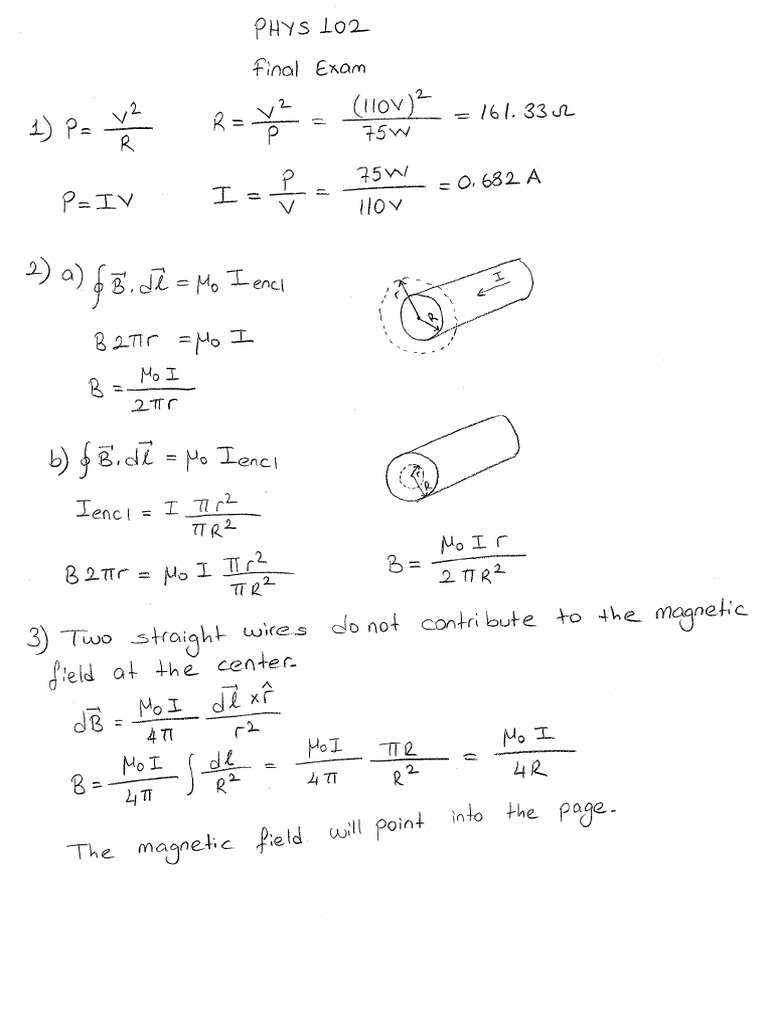 PHYS 102
Final Exam
1) P = V²/R    R = V²/P = (110V)²/75W = 161.33 Ω
P = IV    I = P/V = 75W/110V = 0.682 A
2) a) ∮ B⃗ . dl⃗ = μ₀ I encl
B 2πr = μ₀ I
B = μ₀ I / 2πr
I
r
R
b) ∮ B⃗ . dl⃗ = μ₀ I encl
I encl = I πr²/πR²
r
R
B 2πr = μ₀ I πr²/πR²    B = μ₀ I r / 2πR²
3) Two straight wires do not contribute to the magnetic
field at the center.
dB⃗ = μ₀ I/4π dl⃗ × r̂/r²
B = μ₀ I/4π ∫ dl/R² = μ₀ I/4π πR/R² = μ₀ I/4R
The magnetic field will point into the page.